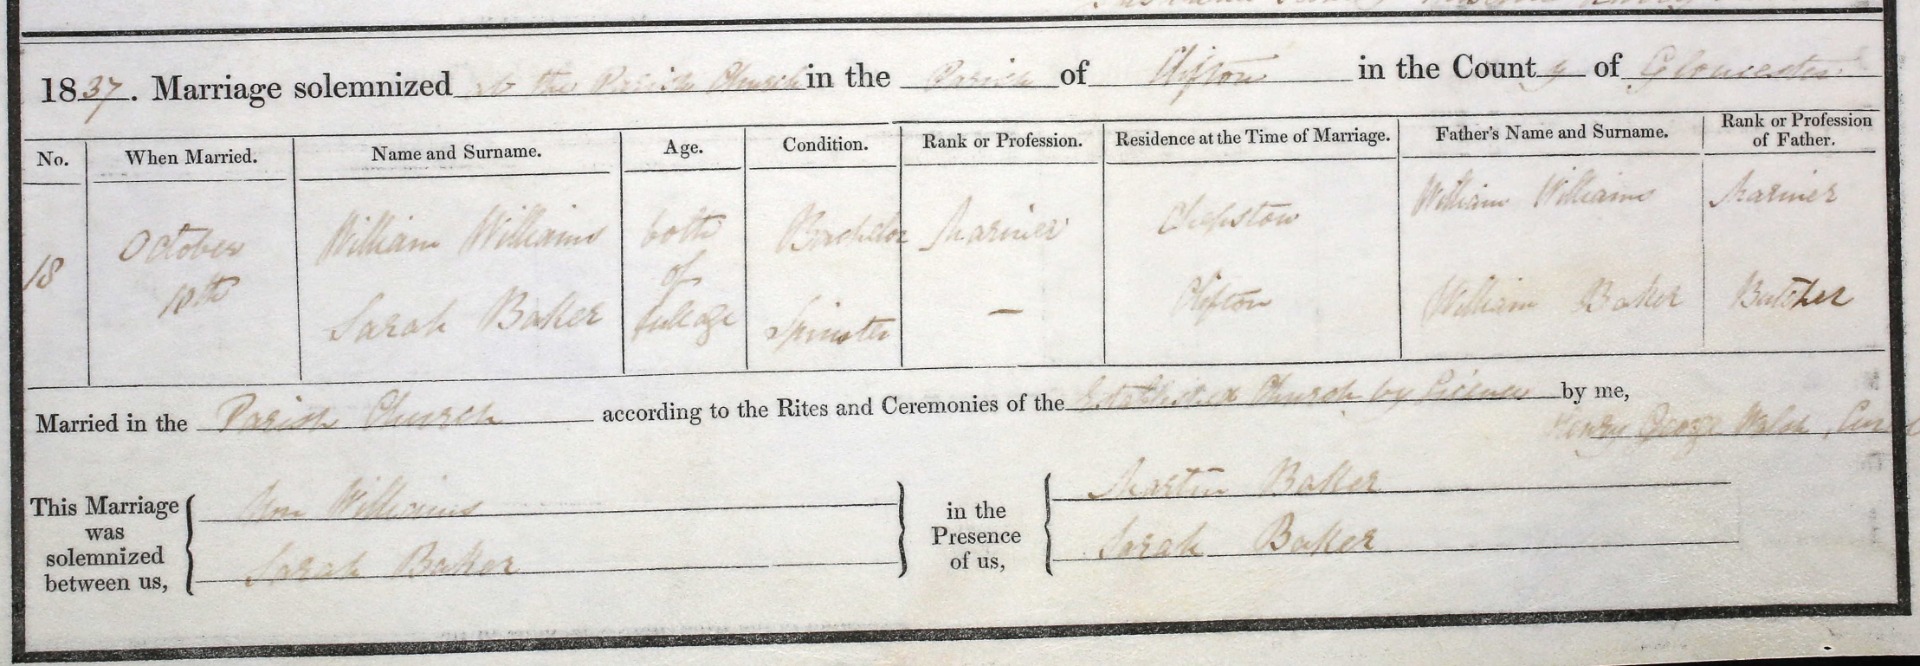 1837. Marriage solemnized at the Parish Church in the Parish of Clifton in the County of Gloucester
No. When Married. Name and Surname. Age. Condition. Rank or Profession. Residence at the Time of Marriage. Father's Name and Surname. Rank or Profession of Father.
18 October 10th
William Williams both of full age Bachelor Mariner Chepstow William Williams Mariner
Sarah Baker Spinster — Clifton William Baker Butcher
Married in the Parish Church according to the Rites and Ceremonies of the Established Church by Licence by me,
Henry George Walsh,
This Marriage was solemnized between us,
Wm Williams
Sarah Baker
in the Presence of us,
Martin Baker
Sarah Baker